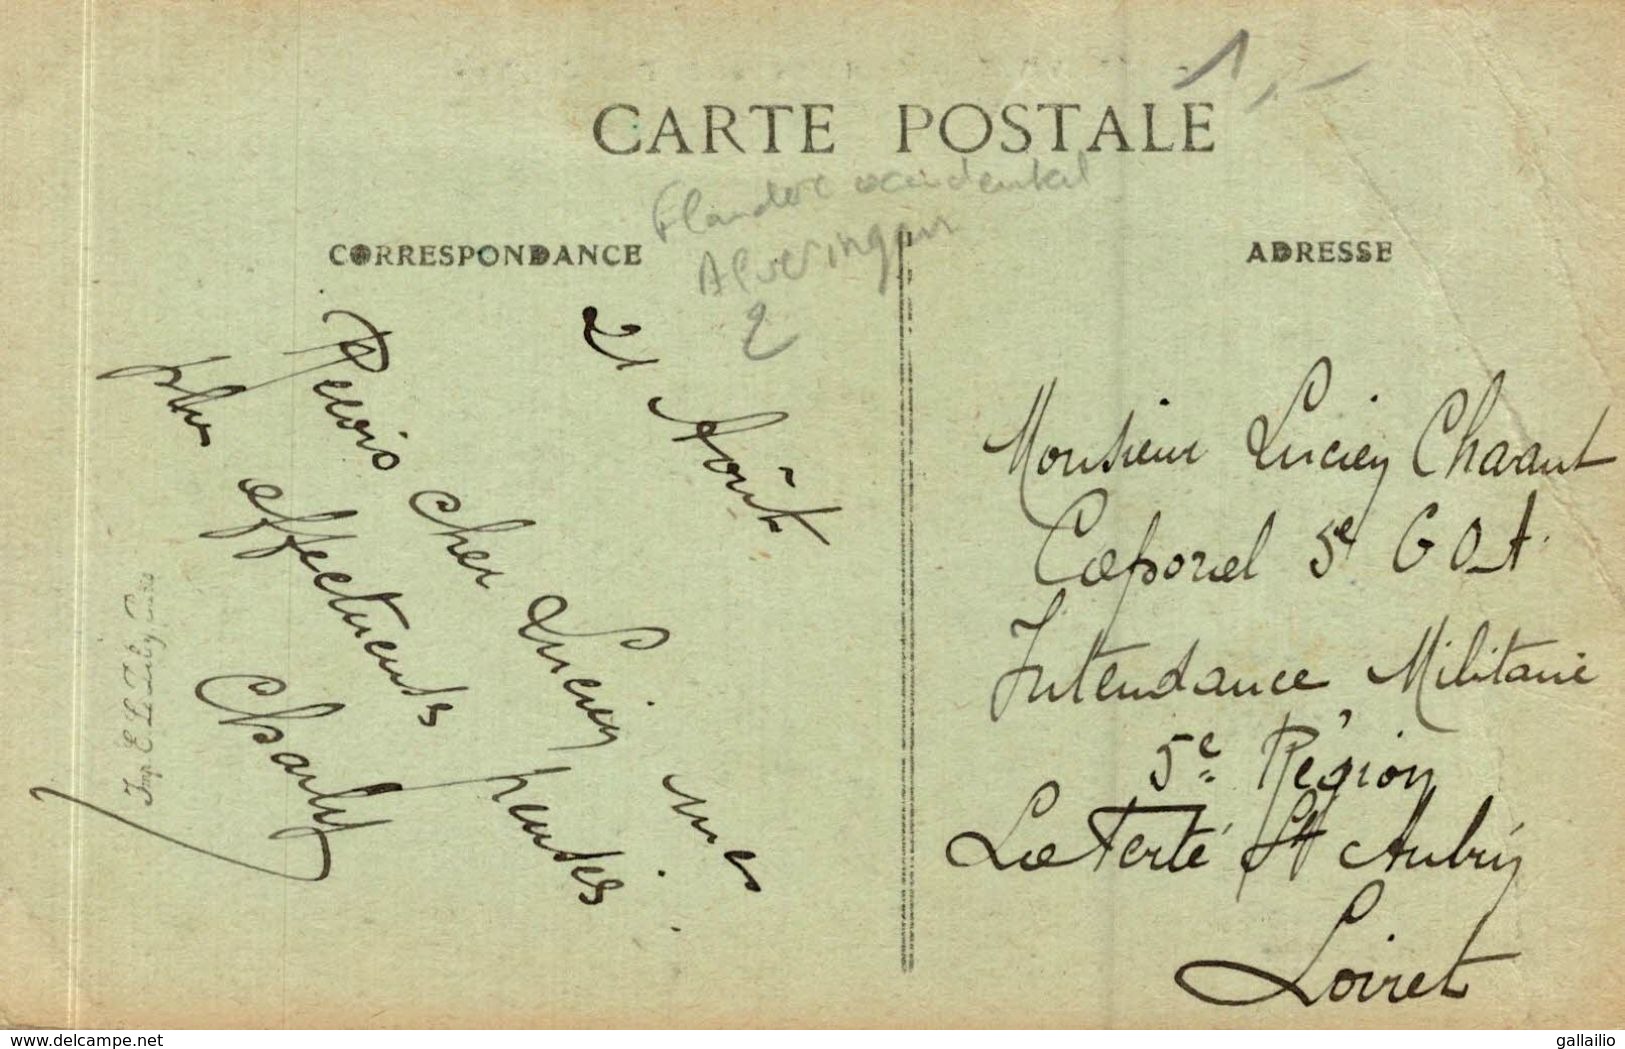 1,-
CARTE POSTALE
Flandre occidental
Alveringem
2
CORRESPONDANCE
ADRESSE
21 Août
Reçois cher Lucien mes
plus affectueuses pensées
Charly
Monsieur Lucien Chavant
Caporal 5e C O A
Intendance Militaire
5e Région
La Ferté St Aubin
Loiret
www.delcampe.net
gallailio